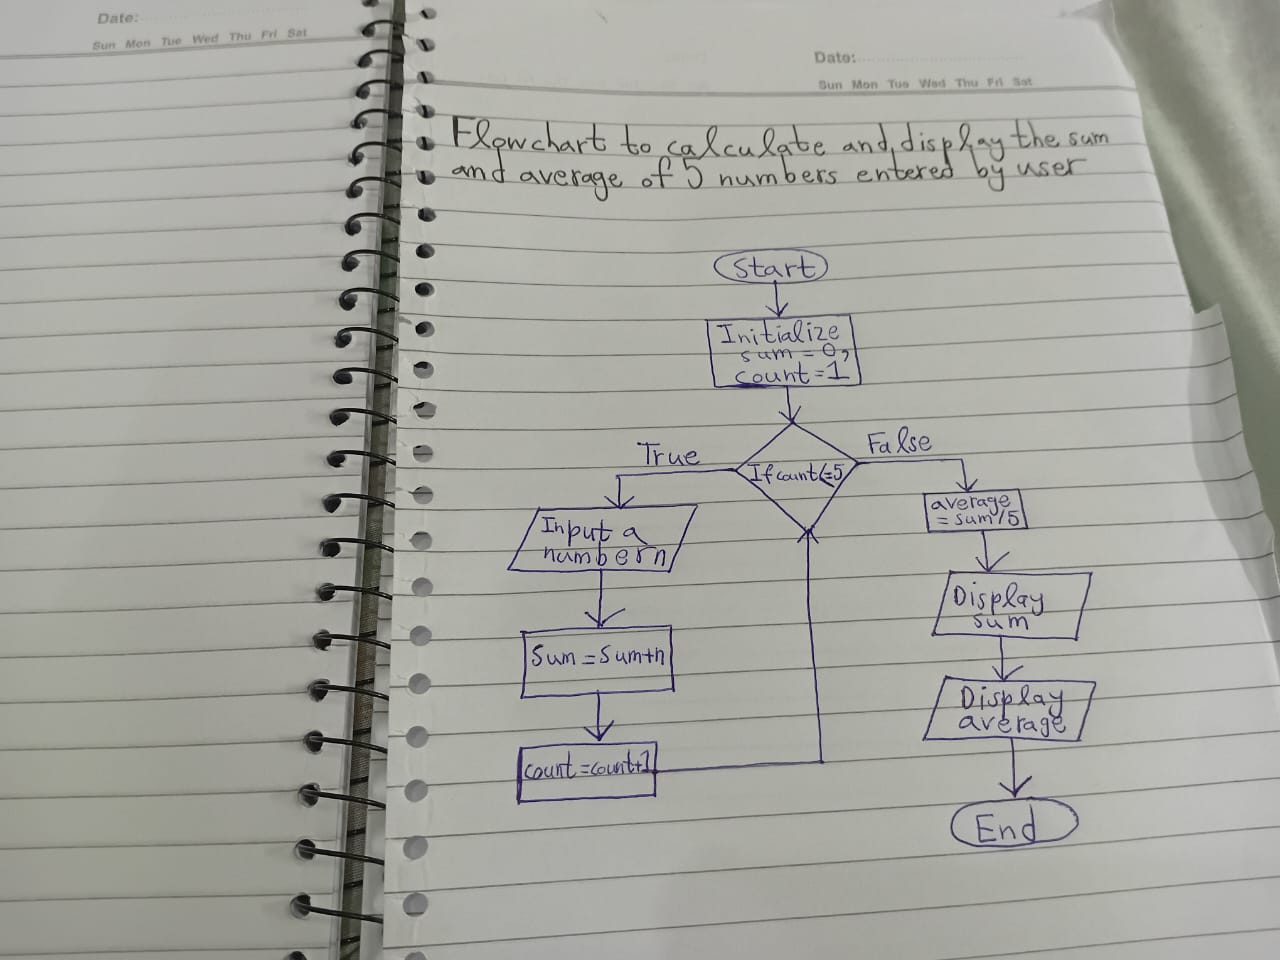 Date:
Sun Mon Tue Wed Thu Fri Sat
Date:
Sun Mon Tue Wed Thu Fri Sat
Flowchart to calculate and display the sum
and average of 5 numbers entered by user
Start
Initialize
sum = 0,
count=1
If count<=5
True
False
Input a
number n
Sum = Sum+n
count=count+1
average
= sum/5
Display
sum
Display
average
End